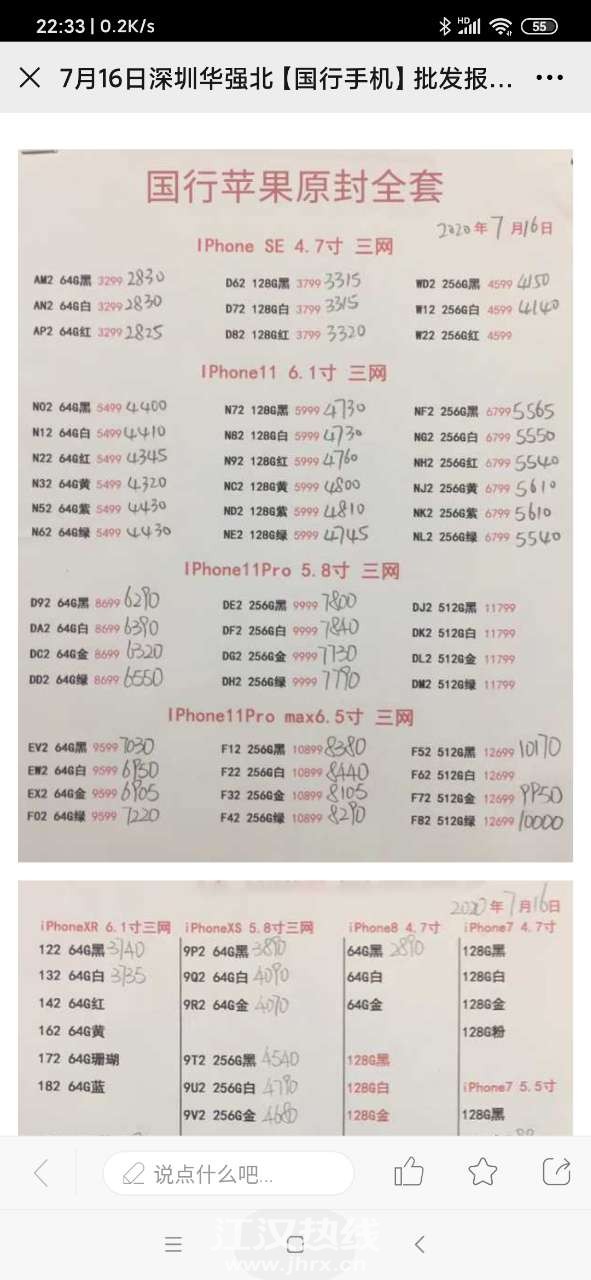 22:33 | 0.2K/s HD 55
7月16日深圳华强北【国行手机】批发报...
国行苹果原封全套
2020年7月16日
IPhone SE 4.7寸 三网
AM2 64G黑 3299 2830 D62 128G黑 3799 3315 WD2 256G黑 4599 4150
AN2 64G白 3299 2830 D72 128G白 3799 3315 W12 256G白 4599 4140
AP2 64G红 3299 2825 D82 128G红 3799 3320 W22 256G红 4599
IPhone11 6.1寸 三网
N02 64G黑 5499 4400 N72 128G黑 5999 4730 NF2 256G黑 6799 5565
N12 64G白 5499 4410 N82 128G白 5999 4730 NG2 256G白 6799 5550
N22 64G红 5499 4345 N92 128G红 5999 4760 NH2 256G红 6799 5540
N32 64G黄 5499 4320 NC2 128G黄 5999 4800 NJ2 256G黄 6799 5610
N52 64G紫 5499 4430 ND2 128G紫 5999 4810 NK2 256G紫 6799 5610
N62 64G绿 5499 4430 NE2 128G绿 5999 4745 NL2 256G绿 6799 5540
IPhone11Pro 5.8寸 三网
D92 64G黑 8699 6290 DE2 256G黑 9999 7800 DJ2 512G黑 11799
DA2 64G白 8699 6390 DF2 256G白 9999 7840 DK2 512G白 11799
DC2 64G金 8699 6320 DG2 256G金 9999 7730 DL2 512G金 11799
DD2 64G绿 8699 6550 DH2 256G绿 9999 7790 DM2 512G绿 11799
IPhone11Pro max6.5寸 三网
EV2 64G黑 9599 7030 F12 256G黑 10899 8380 F52 512G黑 12699 10170
EW2 64G白 9599 6950 F22 256G白 10899 8440 F62 512G白 12699
EX2 64G金 9599 6905 F32 256G金 10899 8105 F72 512G金 12699 9950
F02 64G绿 9599 7220 F42 256G绿 10899 8290 F82 512G绿 12699 10000
2020年7月16日
iPhoneXR 6.1寸三网 iPhoneXS 5.8寸三网 iPhone8 4.7寸 iPhone7 4.7寸
122 64G黑 3740 9P2 64G黑 3890 64G黑 2890 128G黑
132 64G白 3735 9Q2 64G白 4090 64G白 128G白
142 64G红 9R2 64G金 4070 64G金 128G金
162 64G黄 128G粉
172 64G珊瑚 9T2 256G黑 4540 128G黑
182 64G蓝 9U2 256G白 4790 128G白 iPhone7 5.5寸
9V2 256G金 4680 128G金 128G黑
说点什么吧...
江汉热线
www.jhrx.cn